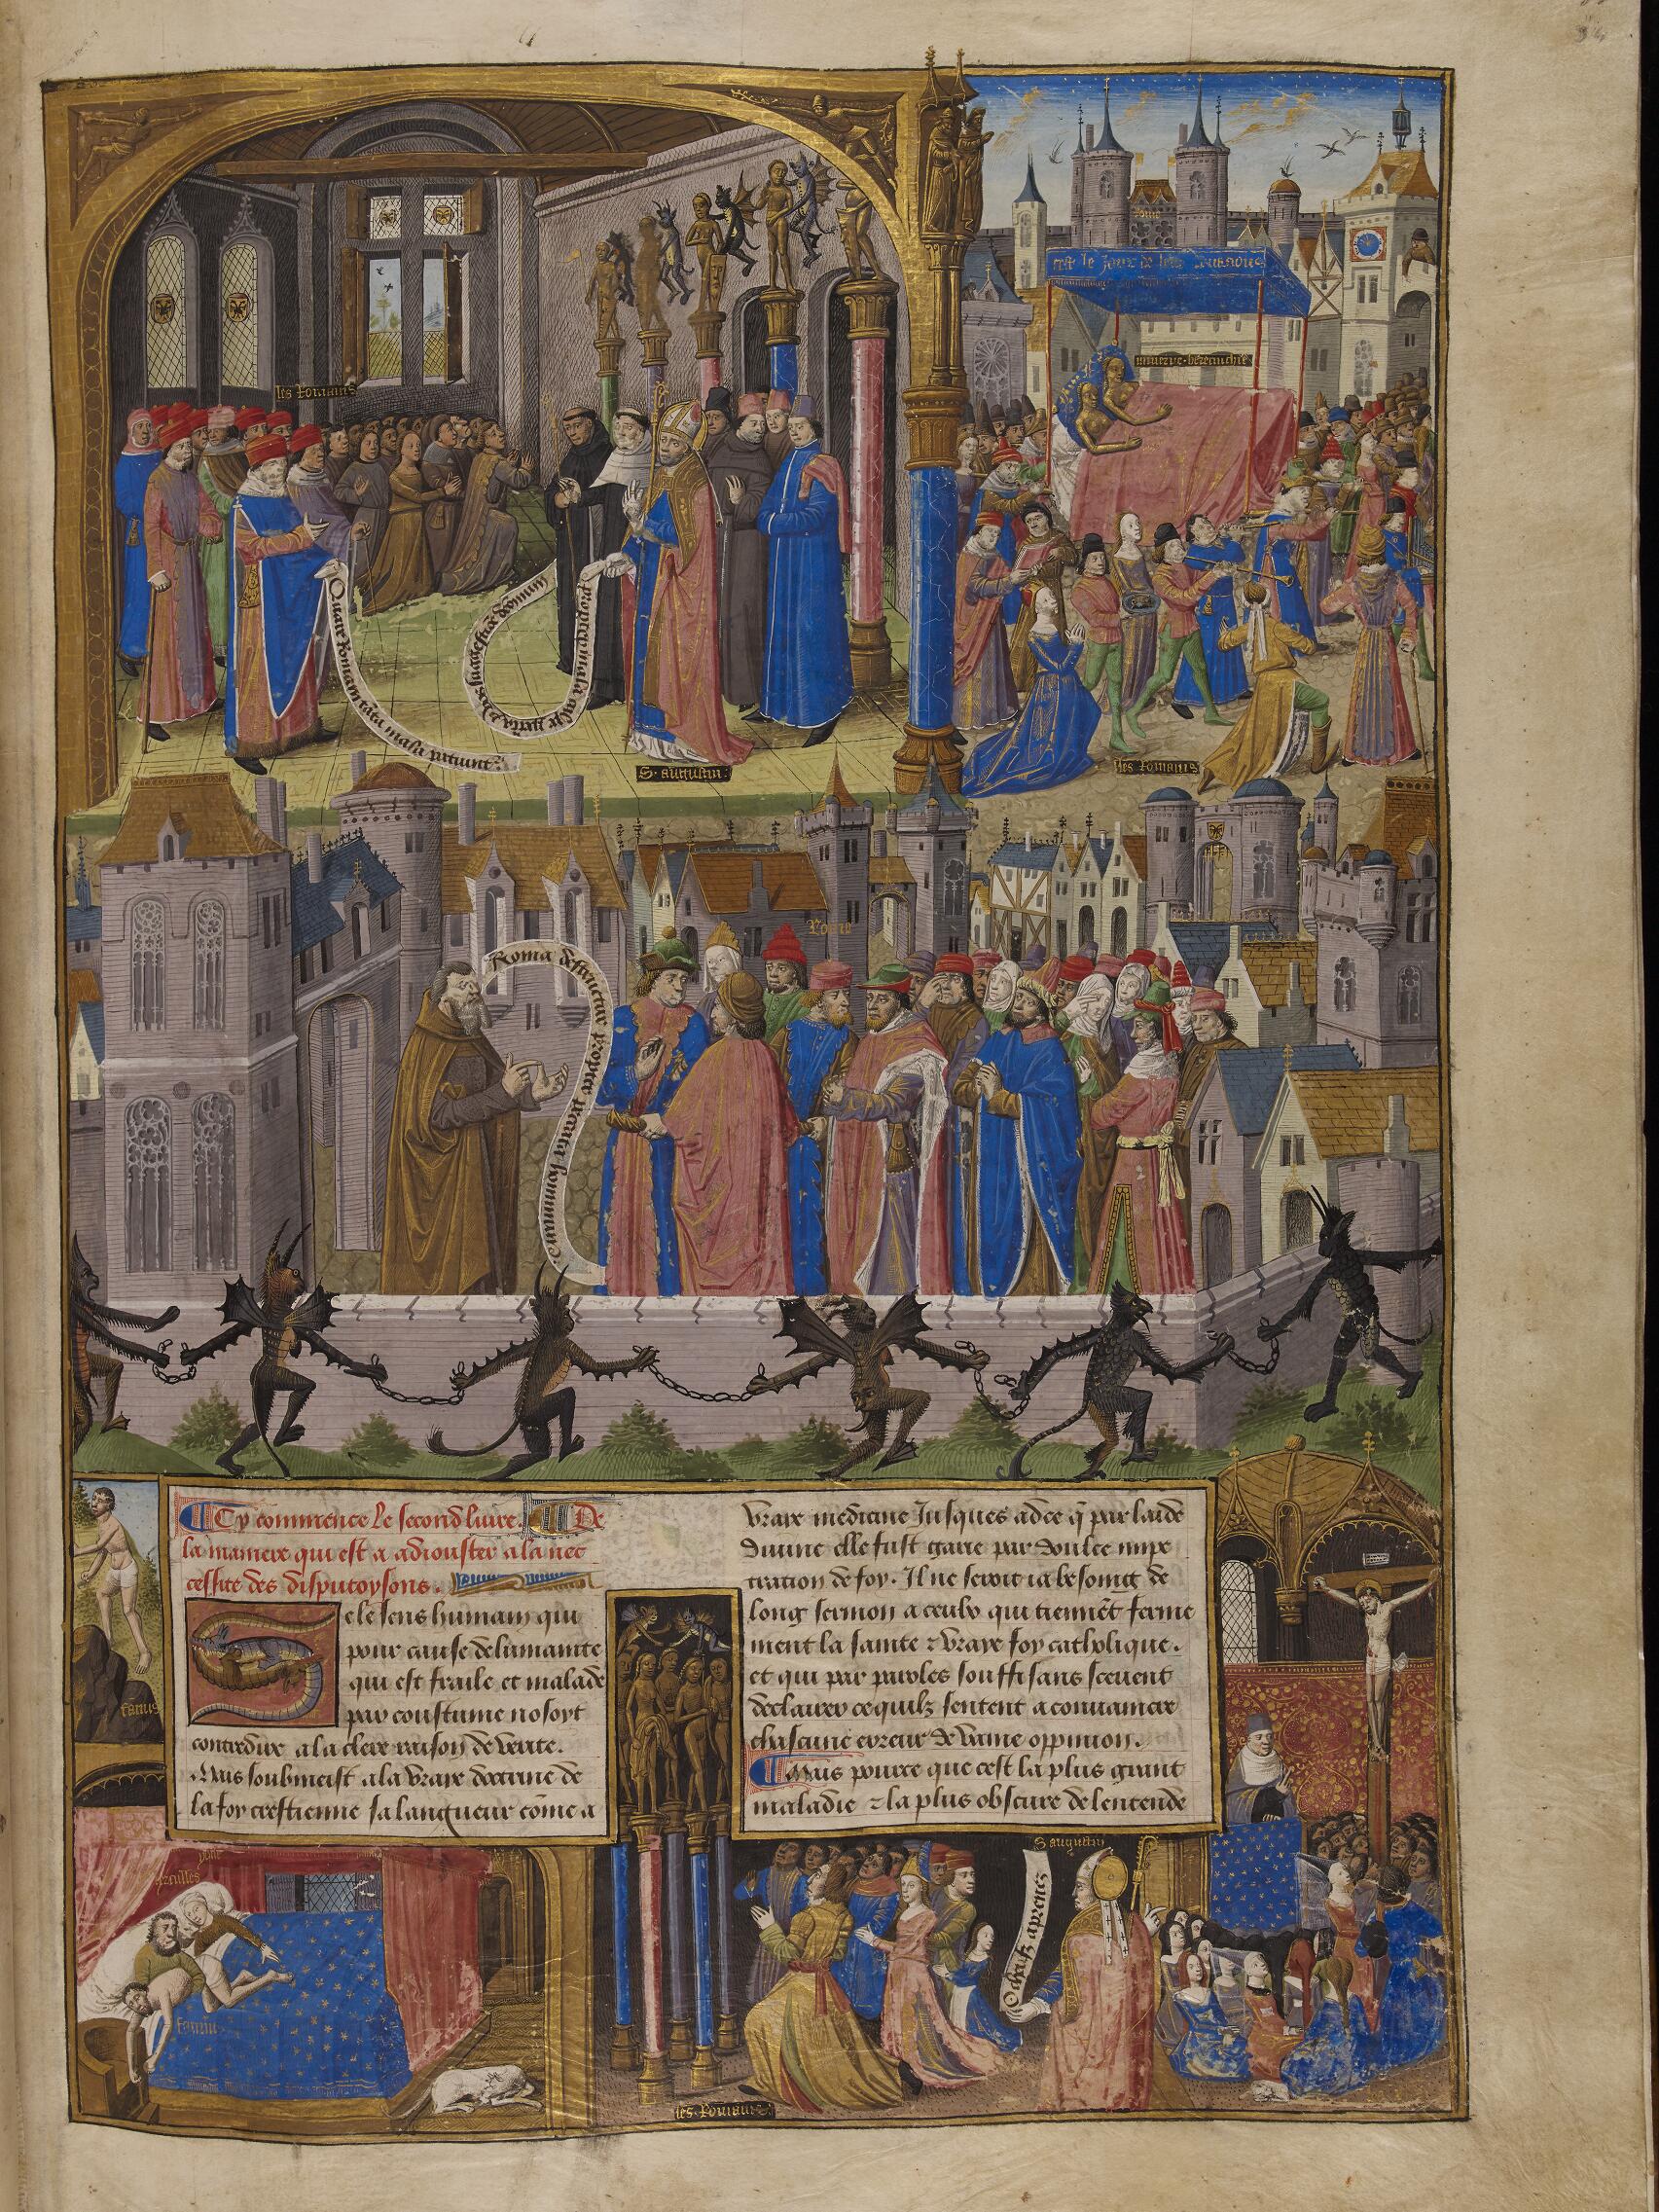 les Romains
Quare Romani tanta mala patiunt
S. augustin
les Romains
Rome
Roma destruitur propter
S augustin
fauni
les Romains
Cy commence le second livre. De
la maniere qui est a adiouster a la nec
cessite des disputoysons.
e le sens humain qui
pour cause de lumanite
qui est fraile et malade
par coustume nosoyt
contredire a la clere raison de verite.
Mais soubmeist a la vraye doctrine de
la foy crestienne sa langueur come a
vraye medicine Jusques adce q par laide
divine elle fust garie par doulce impe
tration de foy. Il ne seroit ia besoing de
long sermon a ceulx qui tiennet ferme
ment la sainte z vraye foy catholique.
et qui par paroles souffisans scevent
declairer ce quilz sentent a convaincre
chascune erreur de vaine oppinion.
Mais pource que cest la plus grant
maladie z la plus obscure de lentende